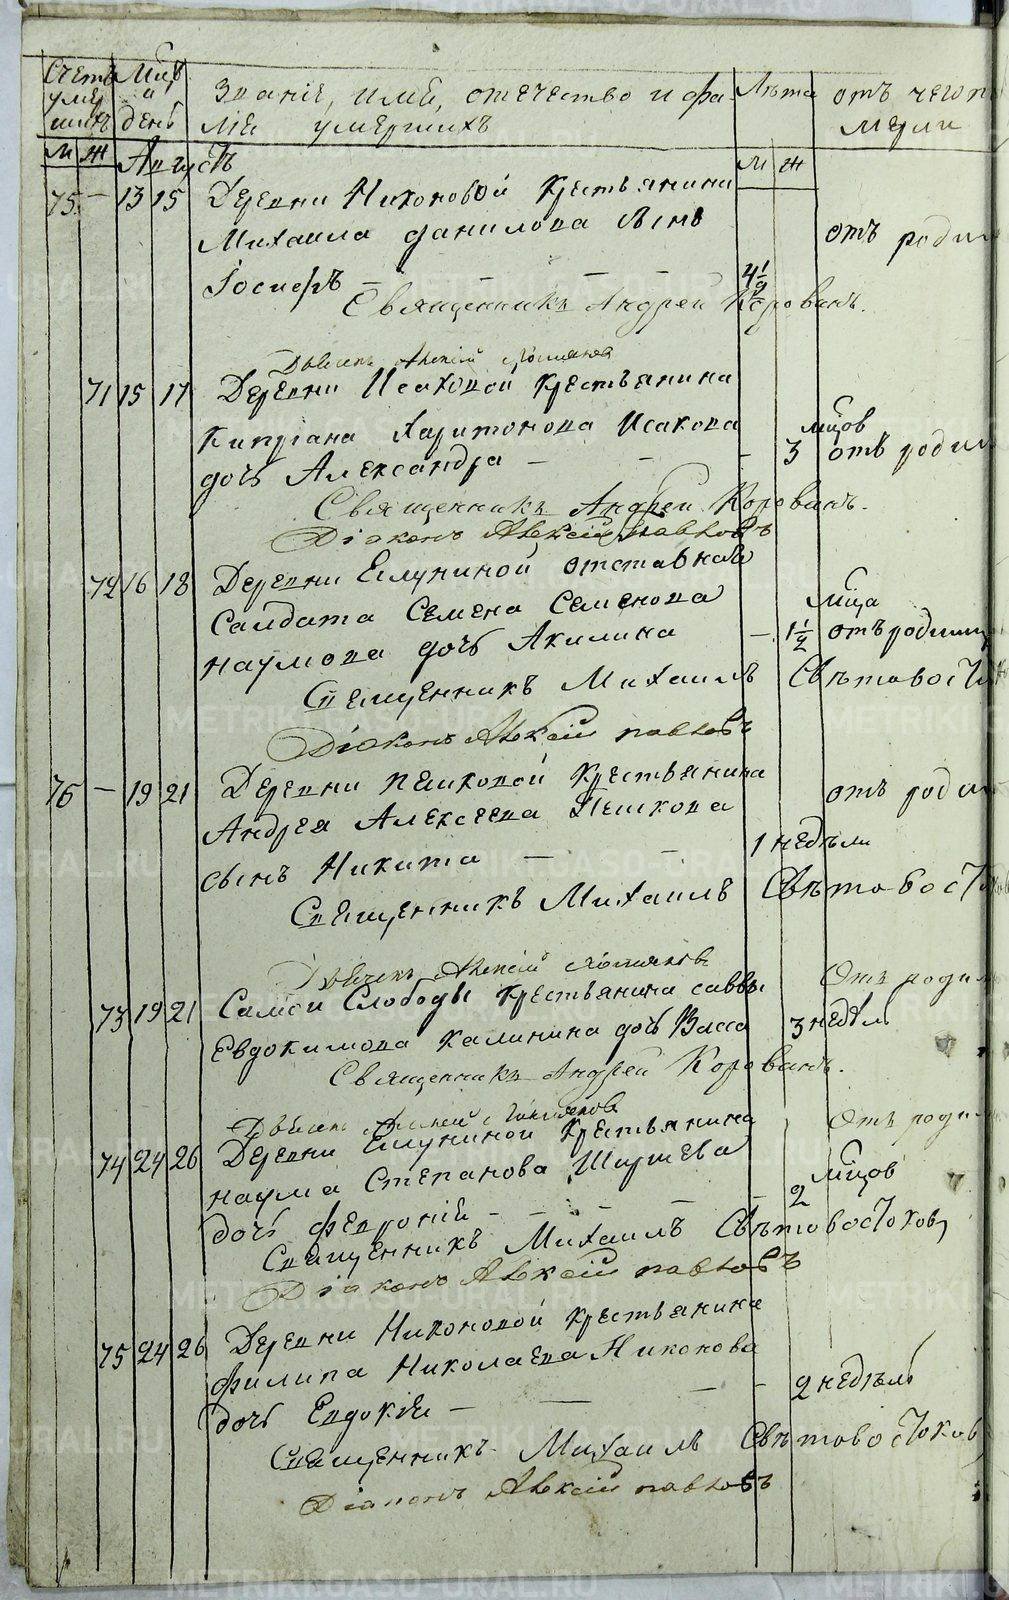 Счетъ умершихъ
Мцъ и день
Званіе, имя, отечество и фа-
миліи умершихъ
Лѣта
отъ чего п
мерли
М Ж
Августъ
М Ж
75 — 13 15 Деревни Никоновой Крестьянина
Михаила Данилова сынъ
отъ родим
Іосифъ — — — — 4 1/2
Священникъ Андрей Корованъ.
Дьячекъ Алексій
71 15 17 Деревни Исаковой Крестьянина
Кипріана Харитонова Исакова
мцов
дочь Александра — — — 3 отъ родим
Священникъ Андрей Корованъ.
Діаконъ Алексій Павловъ
72 16 18 Деревни Елуниной отставнова
Салдата Семена Семенова
мца
Наумова дочь Акилина — 1 1/2 отъ родимц
Священникъ Михаилъ Свѣтовосток
Діаконъ Алексій Павловъ
76 — 19 21 Деревни Пешковой Крестьянина
отъ родим
Андрея Алексеева Пешкова
сынъ Никита — — 1 недѣли
Священникъ Михаилъ Свѣтовосток
Дьячекъ Алексій
Отъ родим
73 19 21 Самой Слободы Крестьянина Саввы
Евдокимова Калинина дочь Васса 3 недѣль
Священникъ Андрей Корованъ.
Дьячекъ Алексій
Отъ родим
74 24 26 Деревни Елуниной Крестьянина
Наума Степанова Ширшева
мцов
дочь Февроній — — — — — 2
Священникъ Михаилъ Свѣтовостоковъ
Діаконъ Алексій Павловъ
75 24 26 Деревни Никоновой Крестьянина
Филипа Николаева Никонова
дочь Евдокіи — — — — 2 недѣль
Священникъ Михаилъ Свѣтовостоков
Діаконъ Алексій Павловъ
METRIKI.GASO-URAL.RU